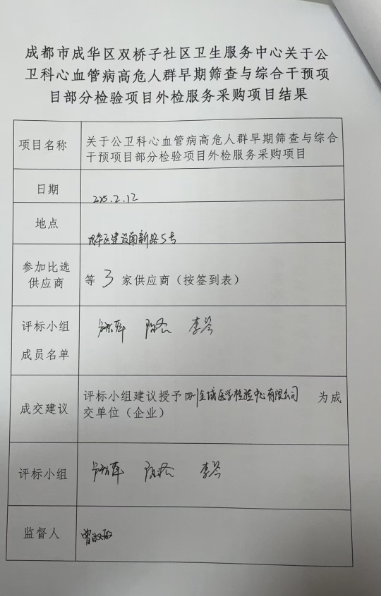 成都市成华区双桥子社区卫生服务中心关于公
卫科心血管病高危人群早期筛查与综合干预项
目部分检验项目外检服务采购项目结果
项目名称
关于公卫科心血管病高危人群早期筛查与综合
干预项目部分检验项目外检服务采购项目
日期
地点
成华区建设南新路5号
参加比选
供应商
等 3 家供应商（按签到表）
评标小组
成员名单
李兰
成交建议
评标小组建议授予 四川金域医学检验中心有限公司 为成
交单位（企业）
评标小组
李兰
监督人